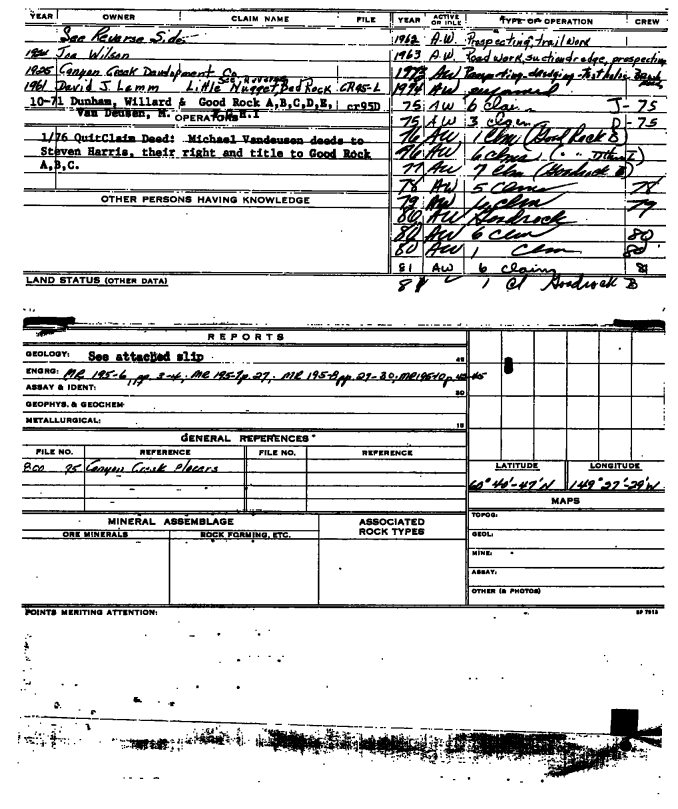 YEAR OWNER CLAIM NAME FILE
See Reverse Side
Joe Wilson
1925 Canyon Creek Development Co. See Reverse
1961 David J. Lamm Little Nugget Bed Rock CR95-L
10-71 Dunham, Willard & Good Rock A,B,C,D,E, cr95D
Van Deusen, M.
OPERATORS
1/76 QuitClaim Deed: Michael Vandeusen deeds to
Steven Harris, their right and title to Good Rock
A,B,C.
OTHER PERSONS HAVING KNOWLEDGE
LAND STATUS (OTHER DATA)
YEAR ACTIVE OR IDLE TYPE OF OPERATION CREW
1962 A.W. Prospecting, trail work
1963 A.W. Road work, suction dredge, prospecting
AW
1974 AW
75 AW 6 claim J-75
75 AW 3 claim D-75
76 AW 1 Clm (Good Rock B)
AW 6 clms
77 AW 7 Clm (Goodrock B)
78 AW 5 Clms 78
79 AW Clm 79
80 AW Goodrock
80 AW 6 Clm 80
80 AW 1 Clm 80
81 AW 6 claims 81
1 Cl Goodrock B
REPORTS
GEOLOGY: See attached slip
ENGRG: MR 195-6, pp. 3-4; MR 195-7 p. 27; MR 195-8 pp. 27-30; MR 195-10 p.
ASSAY & IDENT:
GEOPHYS. & GEOCHEM
METALLURGICAL:
GENERAL REFERENCES
FILE NO. REFERENCE FILE NO. REFERENCE
95 Canyon Creek Placers
MINERAL ASSEMBLAGE
ORE MINERALS ROCK FORMING, ETC.
ASSOCIATED
ROCK TYPES
LATITUDE LONGITUDE
60°40'-47'N 149°27'-29'W
MAPS
TOPOG:
GEOL:
MINE:
ASSAY:
OTHER (& PHOTOS)
POINTS MERITING ATTENTION: